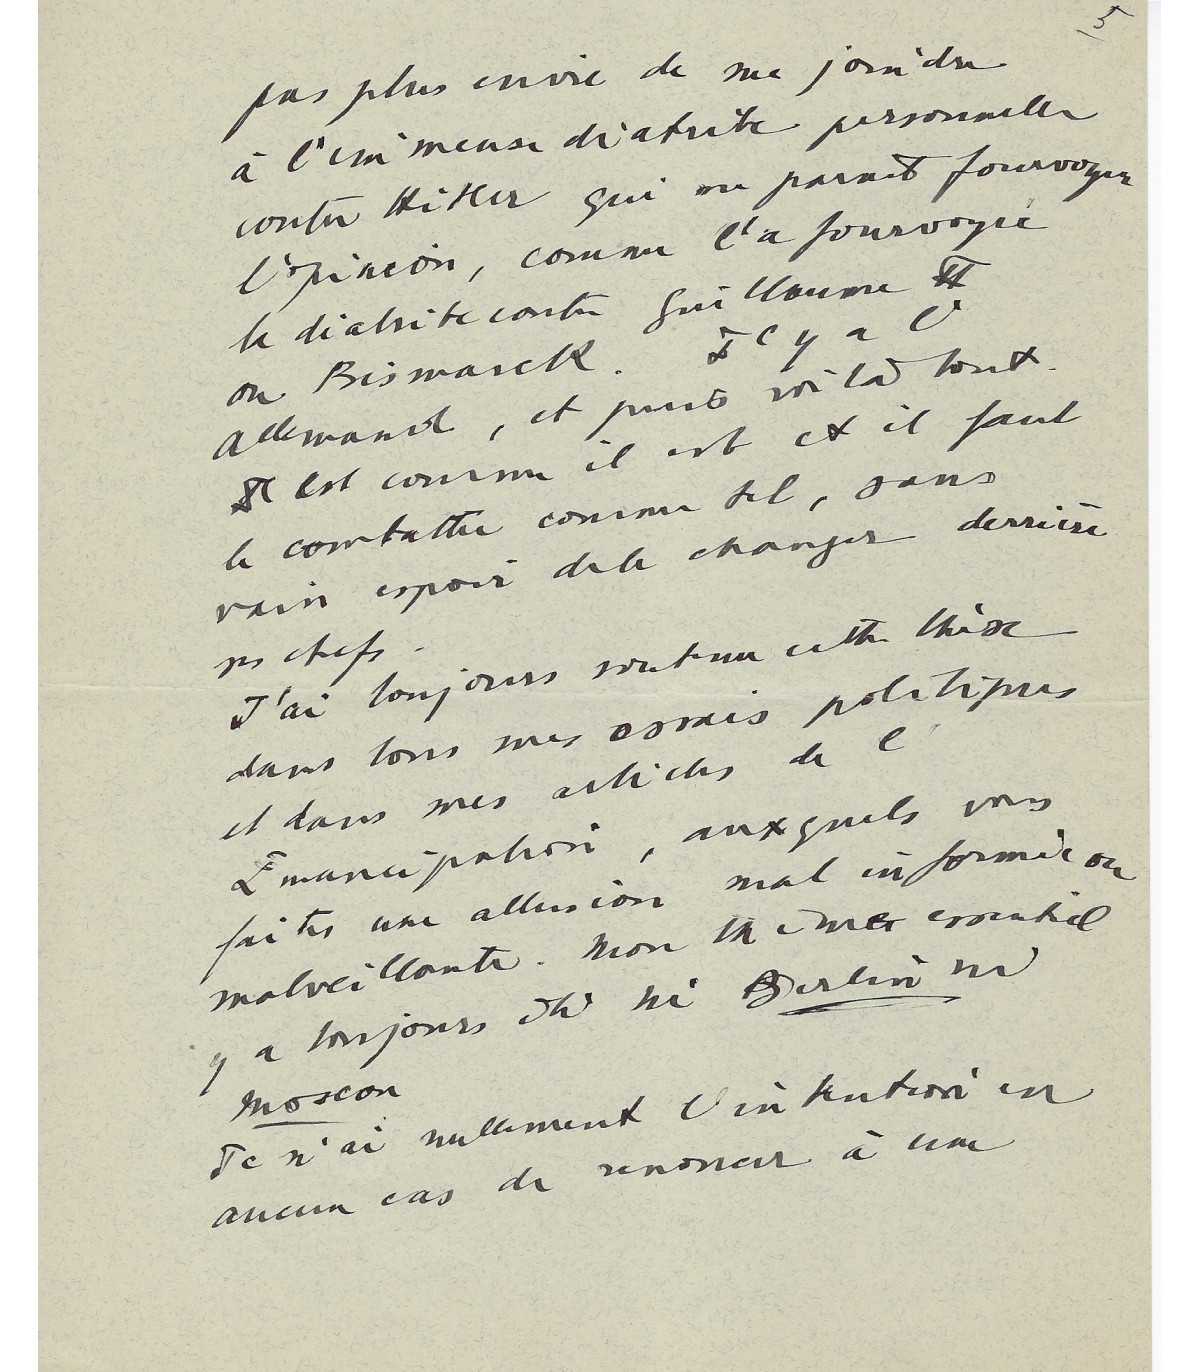 5
pas plus envie de me joindre
à l'immense diatribe personnelle
contre Hitler qui me parait fourvoyer
l'opinion, comme l'a fourvoyée
la diatribe contre Guillaume II
ou Bismarck. Il y a l'
Allemand, et puis voilà tout.
Il est comme il est et il faut
le combattre comme tel, sans
vain espoir de le changer derrière
ses chefs.
J'ai toujours soutenu cette thèse
dans tous mes essais politiques
et dans mes articles de l'
Émancipation, auxquels vous
faites une allusion mal informée ou
malveillante. Mon thème essentiel
y a toujours été ni Berlin ni
Moscou
Je n'ai nullement l'intention en
aucun cas de renoncer à une